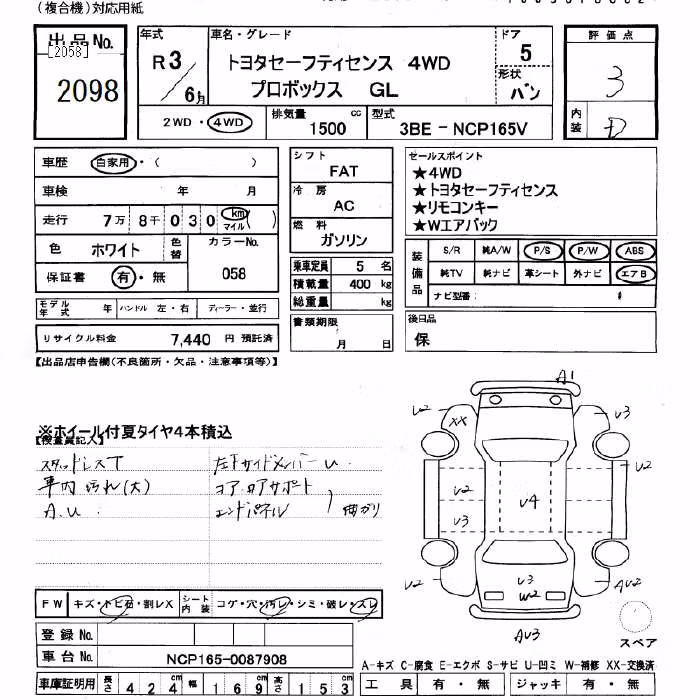 (複合機)対応用紙
出品No.
[2058]
2098
年式
R3/6月
車名・グレード
トヨタセーフティセンス 4WD
プロボックス GL
ドア
5
形状
バン
評価点
3
内装
D
2WD・4WD
排気量
1500 cc
型式
3BE-NCP165V
車歴 自家用・( )
車検 年 月
走行 7万 8千 0 3 0 km マイル ( )
色 ホワイト 色替 カラーNo.
保証書 有・無 058
モデル年式 年 ハンドル 左・右 ディーラー・並行
リサイクル料金 7,440 円 預託済
シフト
FAT
冷房
AC
燃料
ガソリン
乗車定員 5 名
積載量 400 kg
総重量 kg
書類期限
月 日
セールスポイント
★4WD
★トヨタセーフティセンス
★リモコンキー
★Wエアバック
装備品
S/R 純A/W P/S P/W ABS
純TV 純ナビ 革シート 外ナビ エアB
ナビ型番:
後日品
保
【出品店申告欄(不良箇所・欠品・注意事項等)】
※ホイール付夏タイヤ4本積込
【検査員記入】
スタッドレスT
車内 汚れ(大)
A.U.
左下サイドメンバーU.
コア.ロアサポート
エンドパネル
)曲がり
A1
V2
XX
V3
V2
V2
V4
V3
V2
V3
W2
AU2
AU3
スペア
FW キズ・トビ石・割レX シート内装 コゲ・穴・汚レ・シミ・破レ・スレ
登録No.
車台No. NCP165-0087908
車庫証明用 長さ 4 2 4 cm 幅 1 6 9 cm 高さ 1 5 3 cm
A-キズ C-腐食 E-エクボ S-サビ U-凹ミ W-補修 XX-交換済
工具 有・無 ジャッキ 有・無